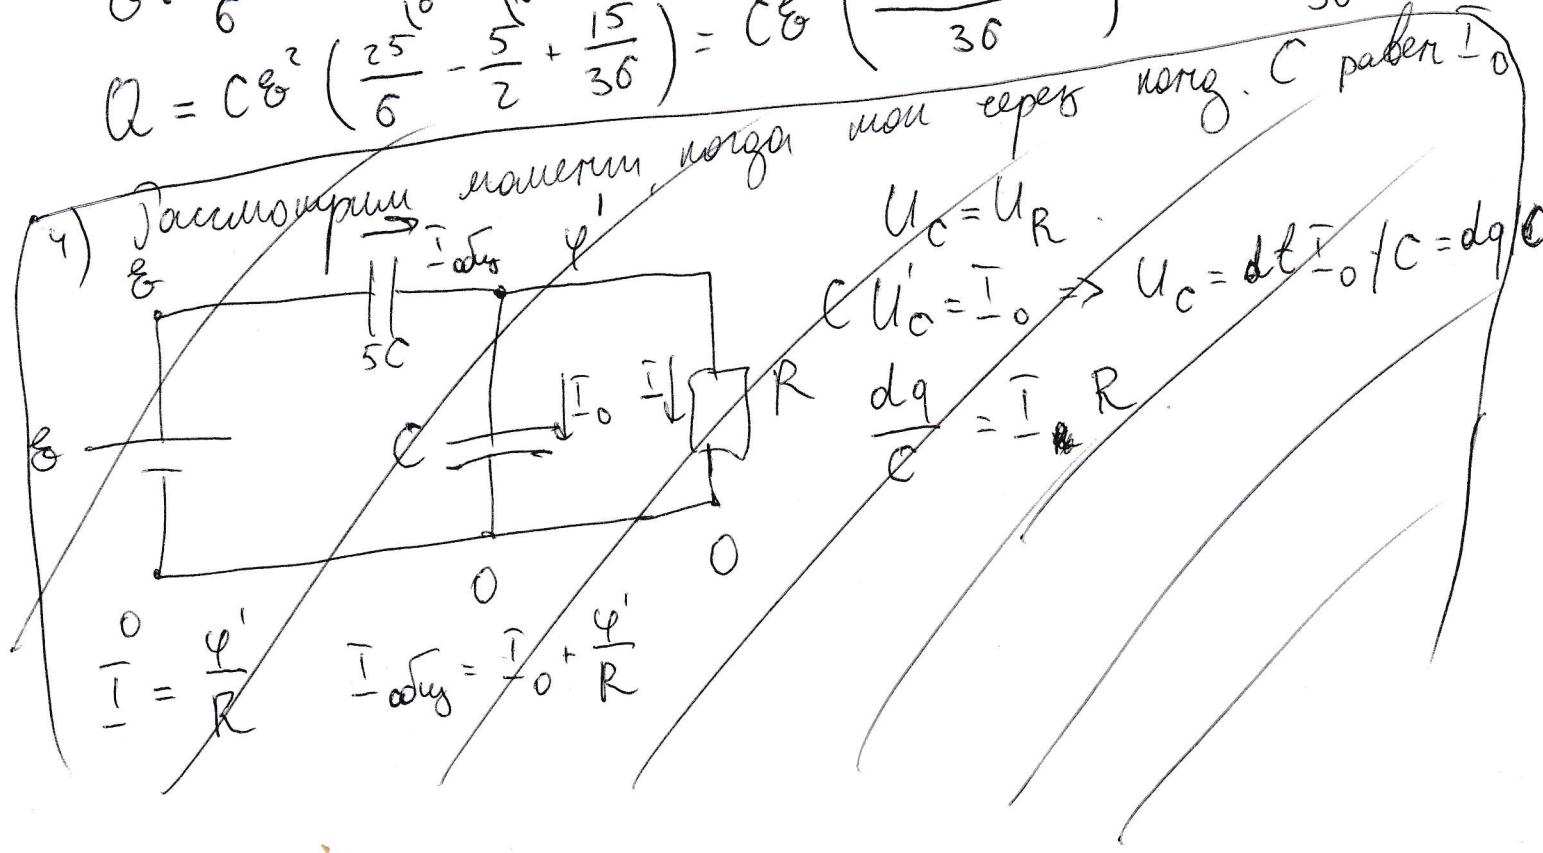 Q = Cℰ² ( 25/6 − 5/2 + 15/36 ) = Cℰ ( /36 )
4) Рассмотрим момент, когда ток через конд. C равен I₀
U_C = U_R
ℰ I общ φ'
C U'_C = I₀ => U_C = dt I₀ / C = dq / C
5C
ℰ C I₀ I R
dq/C = I R
0 0 0
I = φ'/R I общ = I₀ + φ'/R